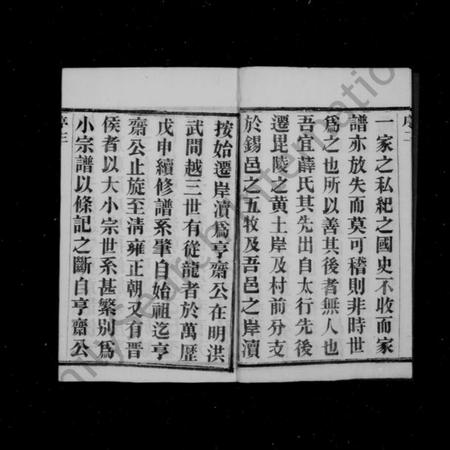 一家之私紀之國史不收而家
譜亦放失而莫可稽則非時世
爲之也所以善其後者無人也
吾宜薛氏其先出自太行先後
遷毘陵之黄土岸及村前分支
於錫邑之五牧及吾邑之岸瀆
按始遷岸瀆爲亨齋公在明洪
武間越三世有從龍者於萬歷
戊申續修譜系肇自始祖迄亨
齋公止旋至淸雍正朝又有晋
侯者以大小宗世系甚繁别爲
小宗譜以條記之斷自亨齋公